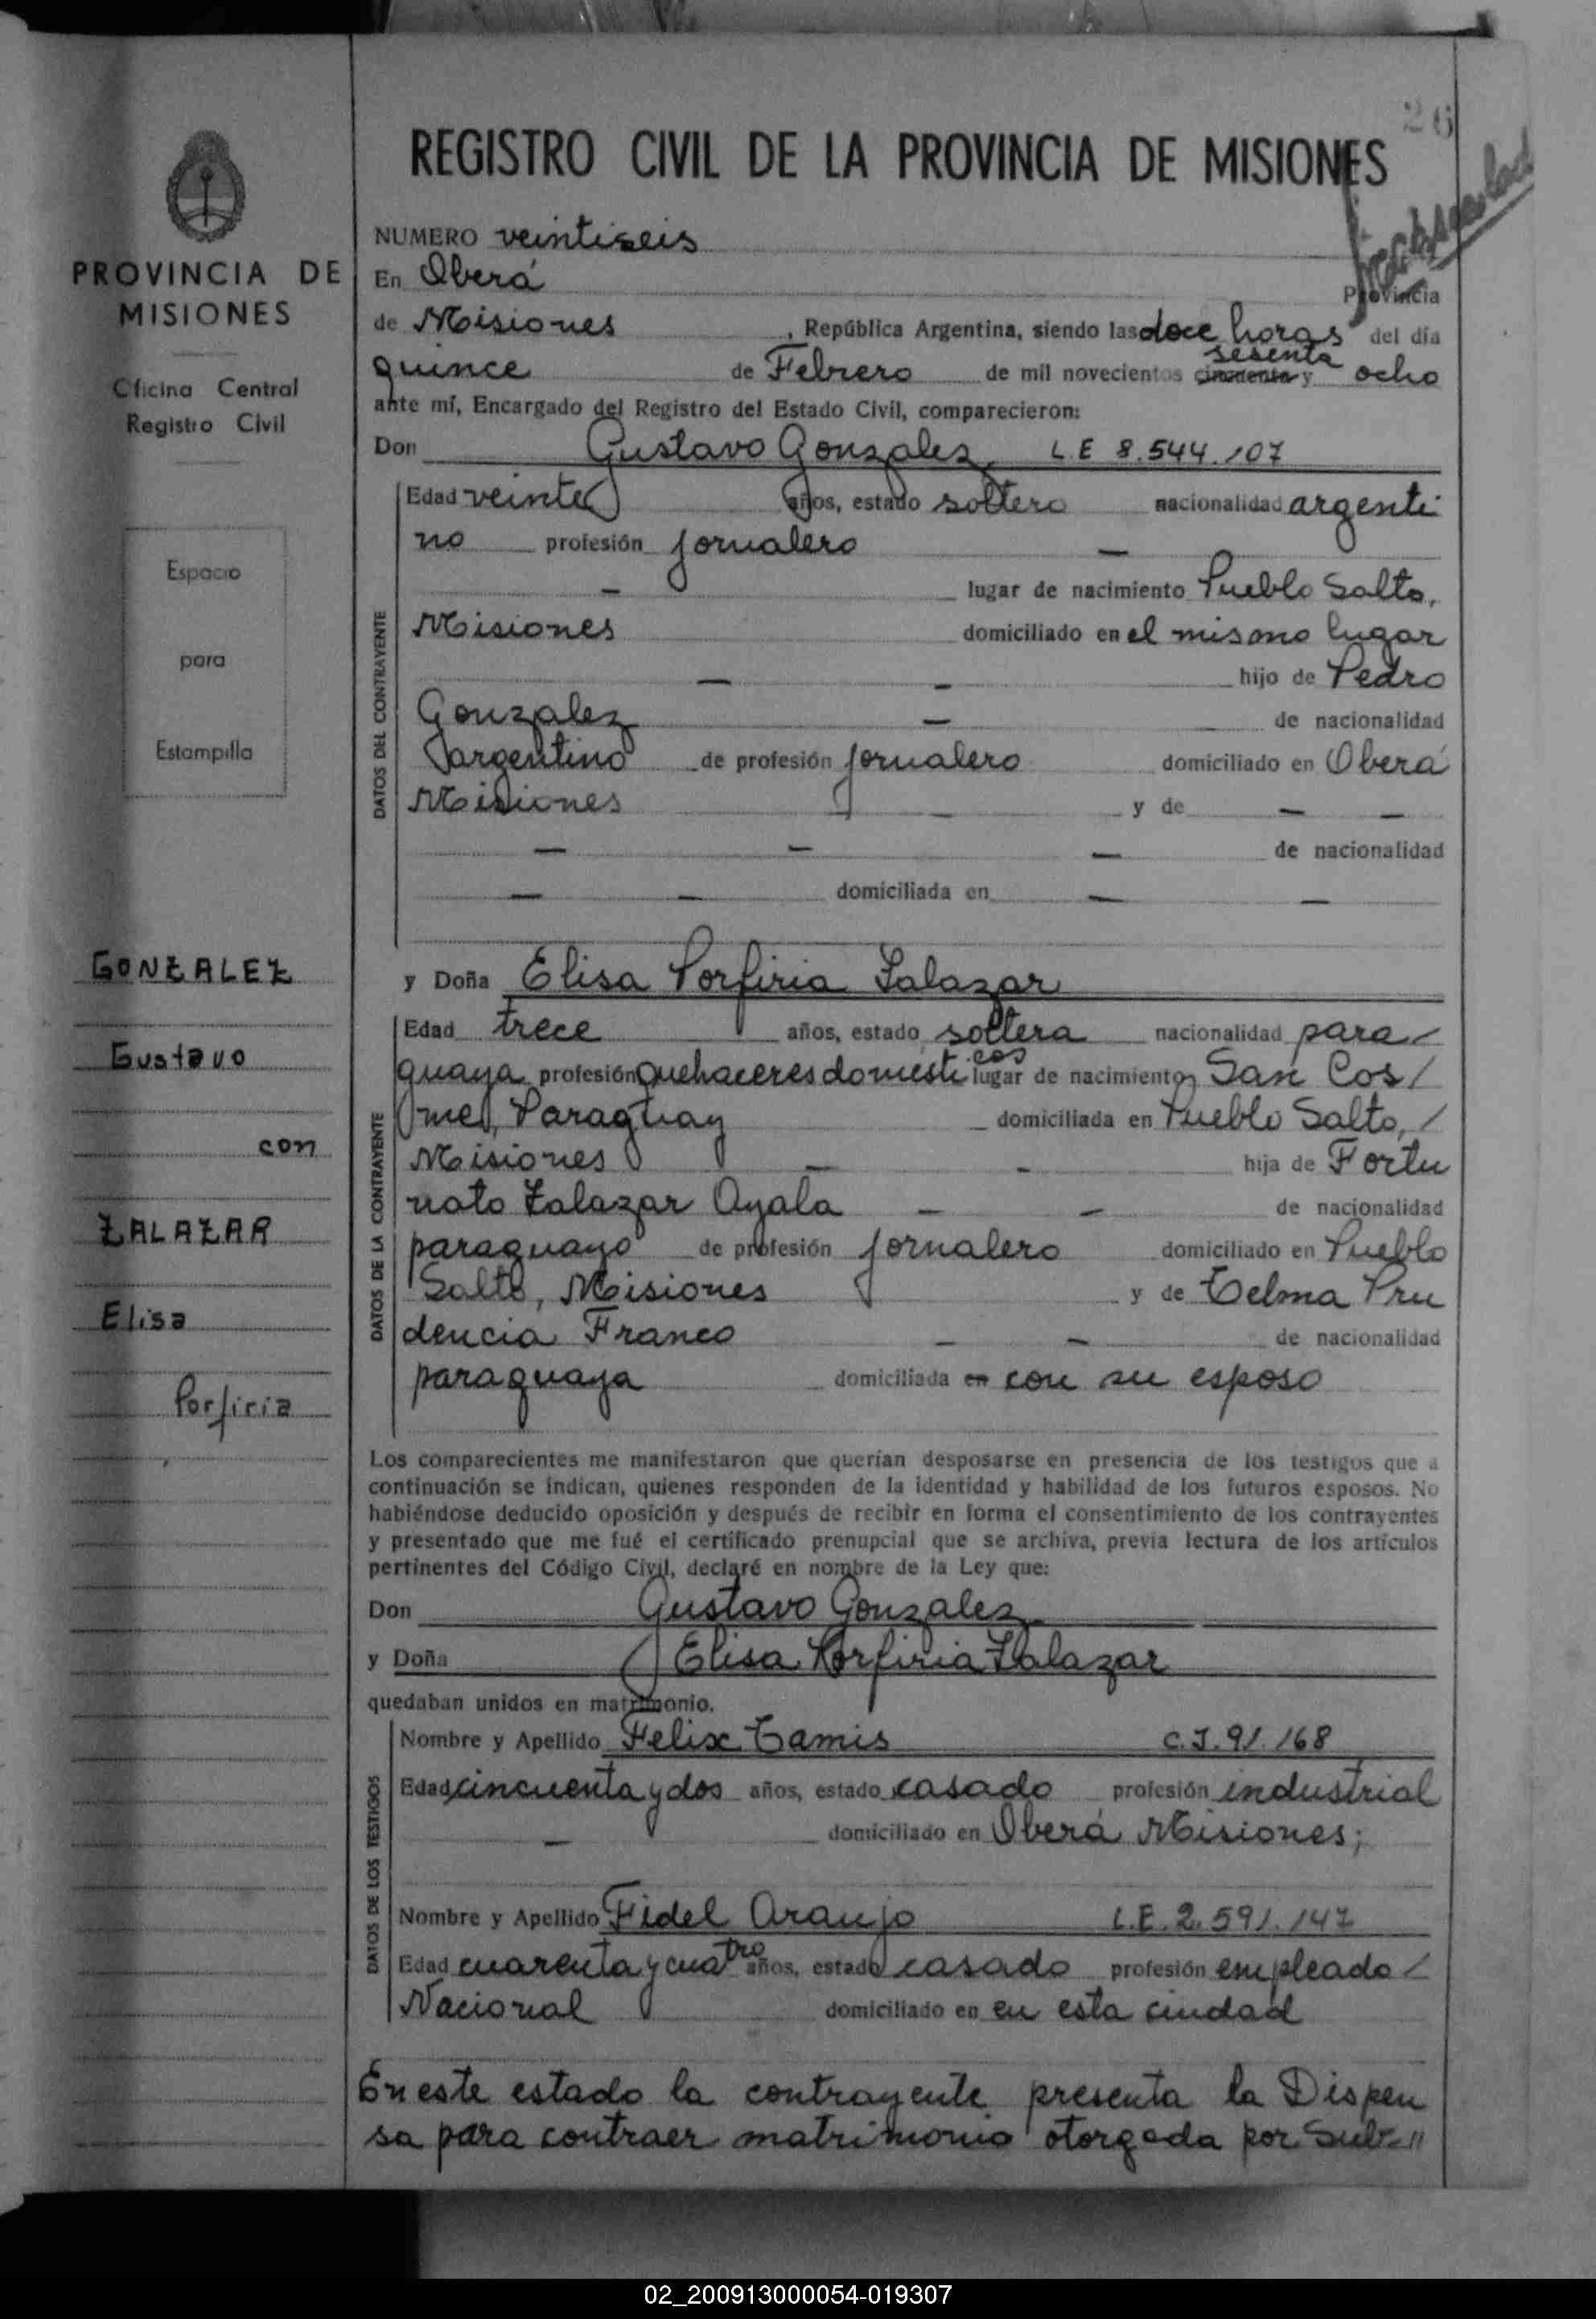 26
REGISTRO CIVIL DE LA PROVINCIA DE MISIONES
PROVINCIA DE
MISIONES
Oficina Central
Registro Civil
Espacio
para
Estampilla
GONZALEZ
Gustavo
con
ZALAZAR
Elisa
Porfiria
NUMERO veintiseis
En Oberá Provincia
de Misiones, República Argentina, siendo las doce horas del día
quince de Febrero de mil novecientos cincuenta sesenta y ocho
ante mí, Encargado del Registro del Estado Civil, comparecieron:
Don Gustavo Gonzalez L.E 8.544.107
DATOS DEL CONTRAYENTE
Edad veinte años, estado soltero nacionalidad argenti
no profesión jornalero —
— lugar de nacimiento Pueblo Salto,
Misiones domiciliado en el mismo lugar
— — hijo de Pedro
Gonzalez — de nacionalidad
argentino de profesión jornalero domiciliado en Oberá
Misiones — y de — —
— — — de nacionalidad
— — domiciliada en — —
y Doña Elisa Porfiria Zalazar
DATOS DE LA CONTRAYENTE
Edad trece años, estado soltera nacionalidad para/
guaya profesión quehaceres domesticos lugar de nacimiento San Cos/
me, Paraguay domiciliada en Pueblo Salto, /
Misiones — — hija de Fortu
nato Zalazar Ayala — — de nacionalidad
paraguayo de profesión jornalero domiciliado en Pueblo
Salto, Misiones y de Telma Pru
dencia Franco — — de nacionalidad
paraguaya domiciliada en con su esposo
Los comparecientes me manifestaron que querían desposarse en presencia de los testigos que a
continuación se indican, quienes responden de la identidad y habilidad de los futuros esposos. No
habiéndose deducido oposición y después de recibir en forma el consentimiento de los contrayentes
y presentado que me fué el certificado prenupcial que se archiva, previa lectura de los artículos
pertinentes del Código Civil, declaré en nombre de la Ley que:
Don Gustavo Gonzalez
y Doña Elisa Porfiria Zalazar
quedaban unidos en matrimonio.
DATOS DE LOS TESTIGOS
Nombre y Apellido Felix Tamis C.I. 91.168
Edad cincuenta y dos años, estado casado profesión industrial
— domiciliado en Oberá Misiones;
Nombre y Apellido Fidel Araujo L.E. 2.591.147
Edad cuarenta y cuatro años, estado casado profesión empleado /
Nacional domiciliado en en esta ciudad
En este estado la contrayente presenta la Dispen
sa para contraer matrimonio otorgada por Sub-//
02_200913000054-019307